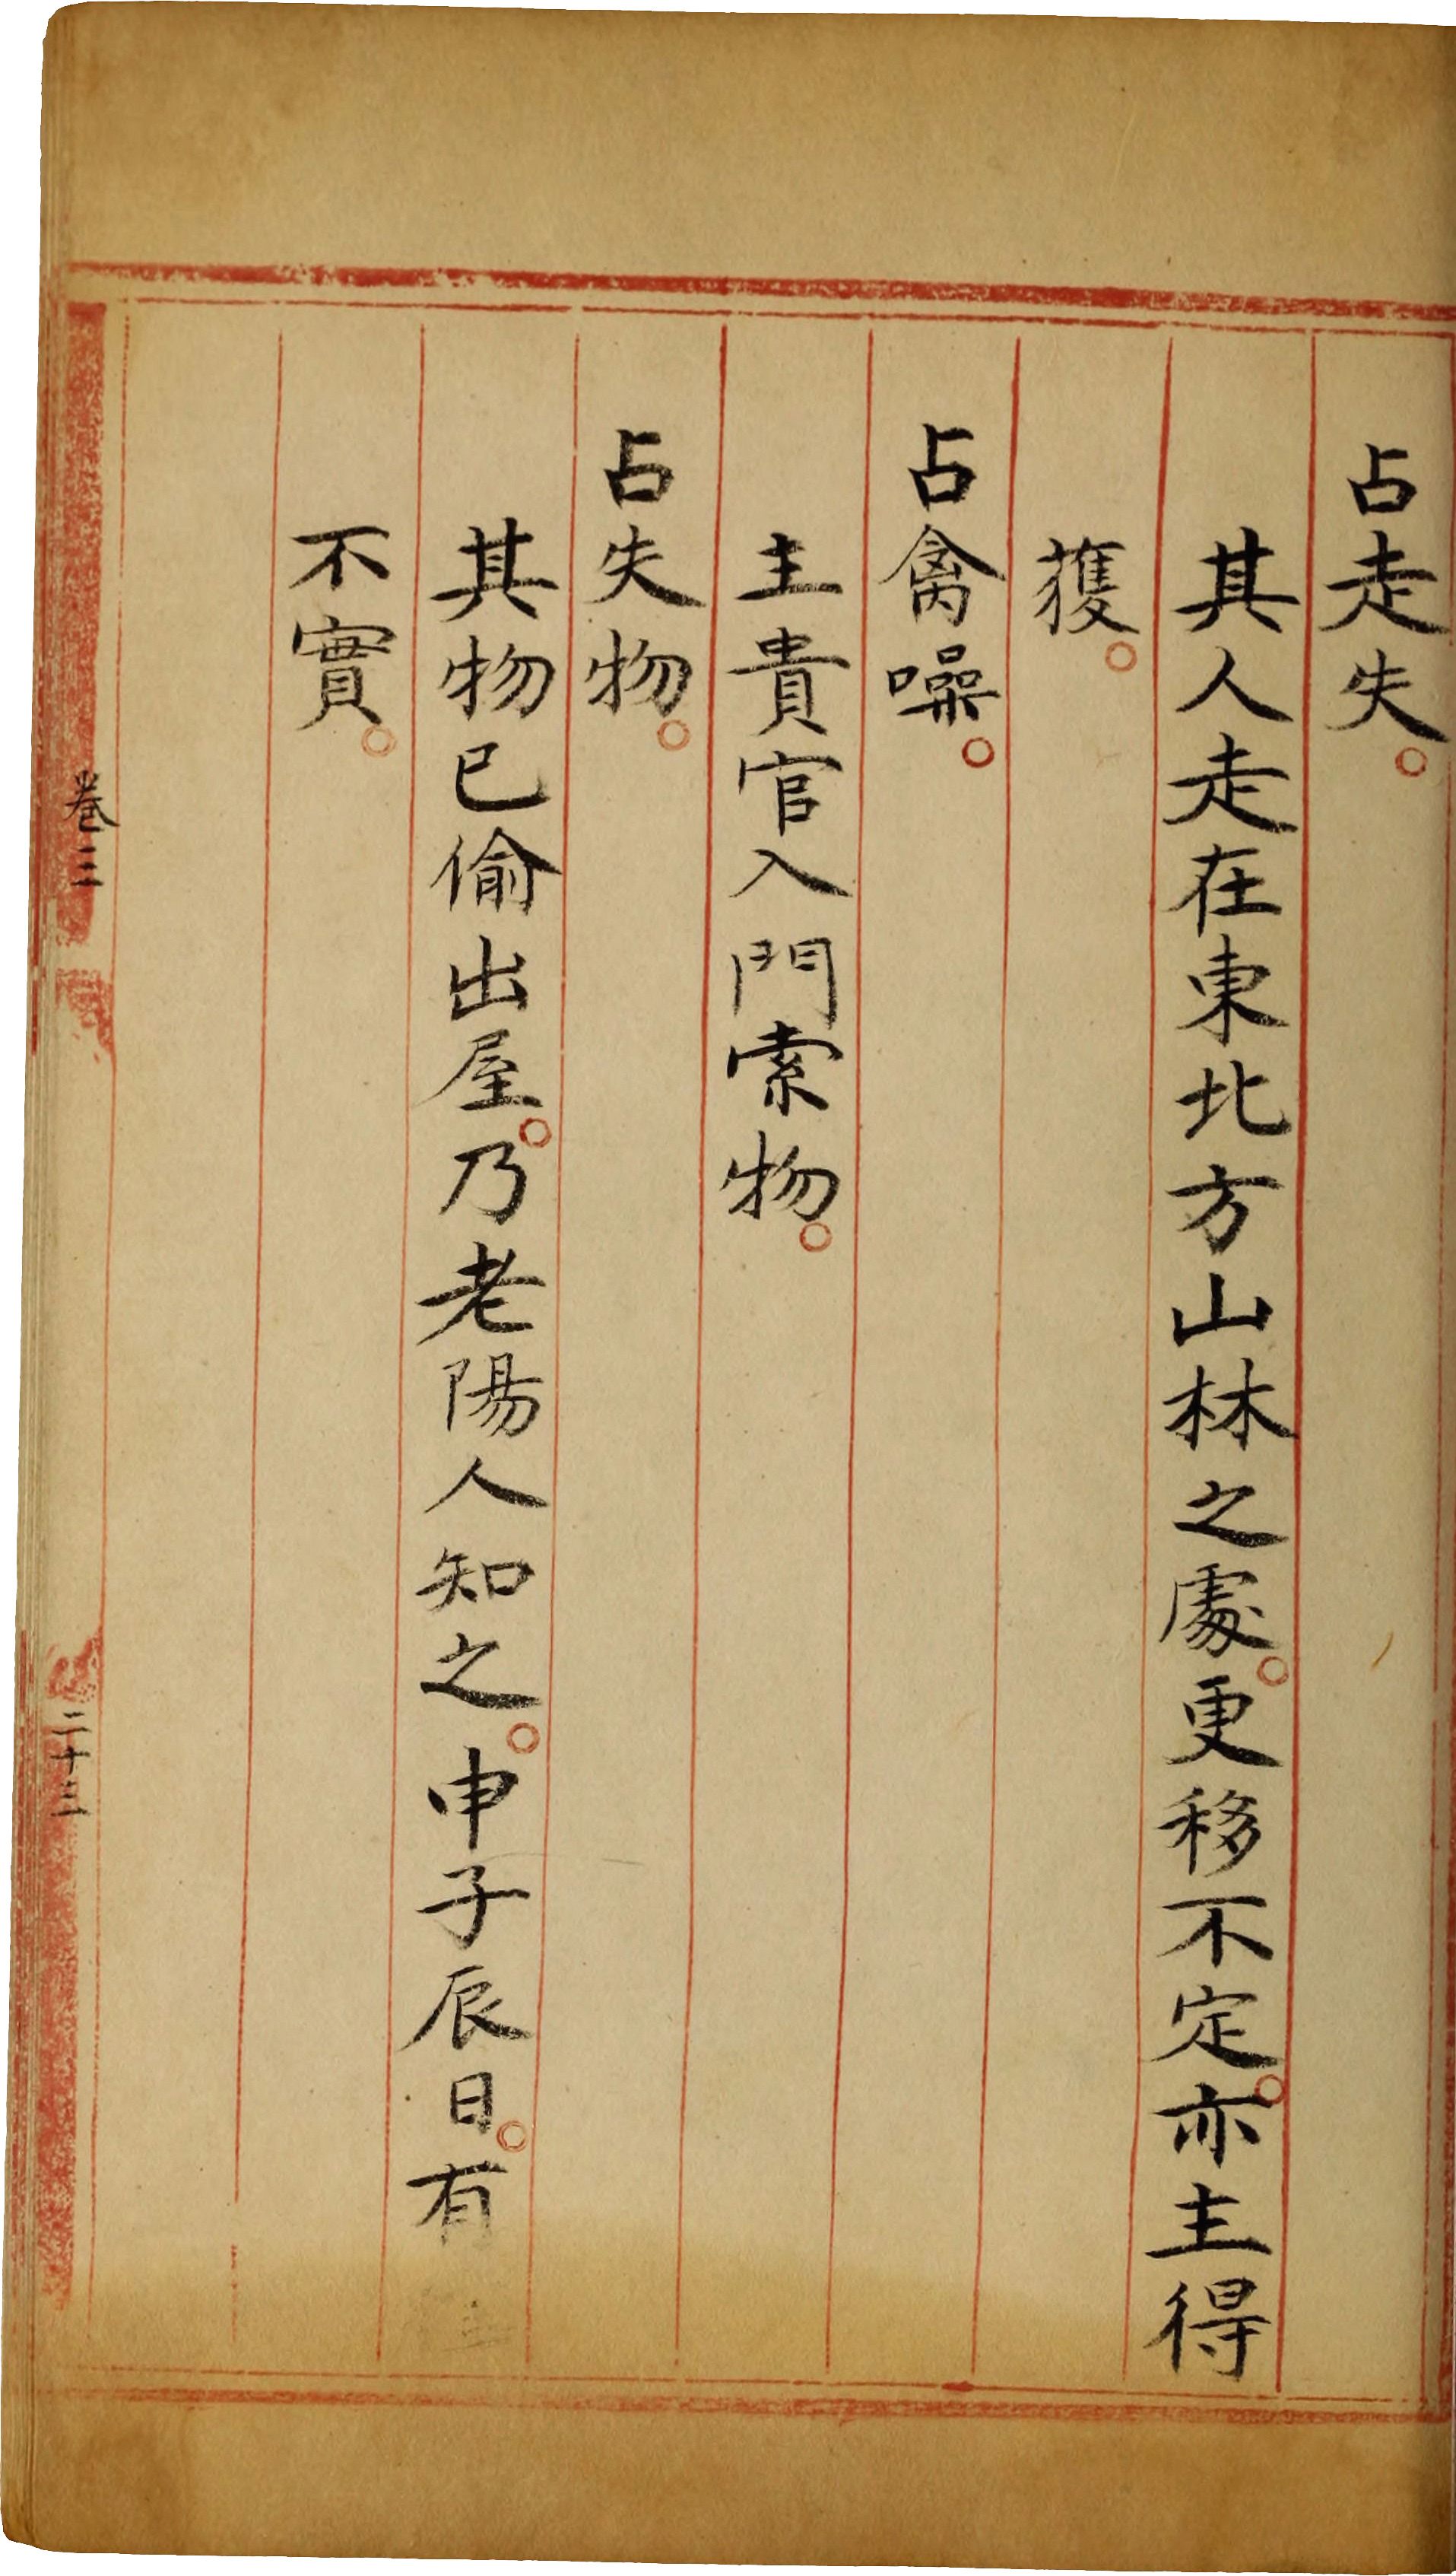 占走失。
其人走在東北方山林之處。更移不定。亦主得
獲。
占禽噪。
主貴官入門索物。
占失物。
其物已偷出屋。乃老陽人知之。申子辰日。有
不實。
卷三
二十三